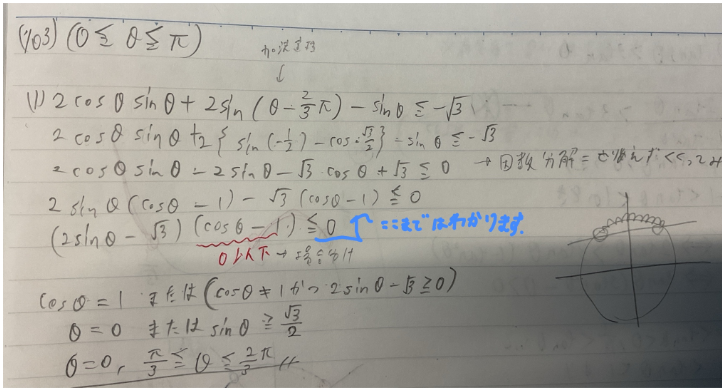 (103) (0 ≦ θ ≦ π)
加法定理
↓
(1) 2 cosθ sinθ + 2sin (θ - 2/3 π) - sinθ ≦ -√3
2 cosθ sinθ + 2 { sin (-1/2) - cos・√3/2 } - sinθ ≦ -√3
2 cosθ sinθ - 2 sinθ - √3 cosθ + √3 ≦ 0 → 因数分解
2 sinθ (cosθ - 1) - √3 (cosθ - 1) ≦ 0
(2sinθ - √3) (cosθ - 1) ≦ 0 ここまではわかります.
0以下 → 場合分け
cosθ = 1 または (cosθ ≠ 1 かつ 2 sinθ - √3 ≧ 0)
θ = 0 または sinθ ≧ √3/2
θ = 0, π/3 ≦ θ ≦ 2/3 π